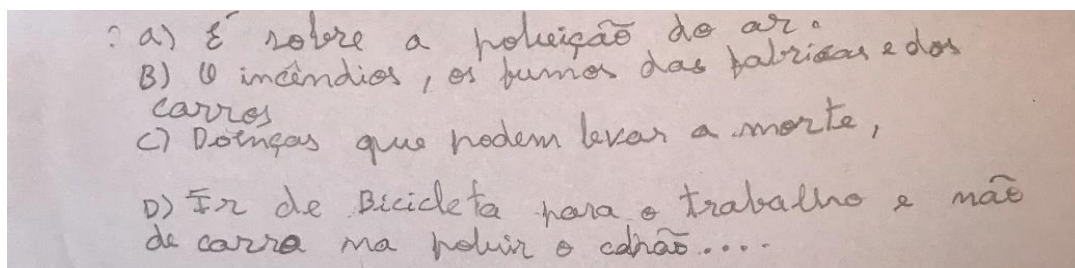 : a) É sobre a polueição do ar.
B) O incêndios, os fumos das fabricas e dos
carros
C) Doenças que podem levar a morte,
D) Ir de Bicicleta para o trabalho e não
de carro na poluir o ....